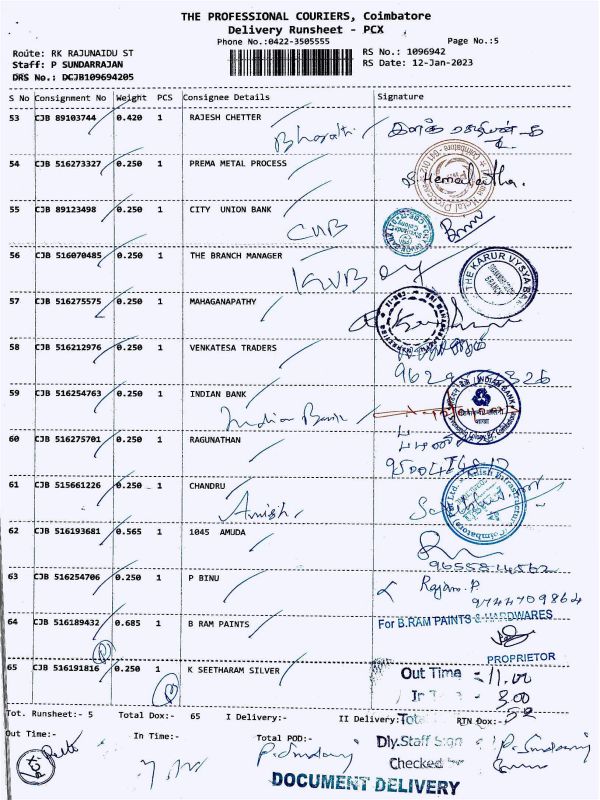 THE PROFESSIONAL COURIERS, Coimbatore
Delivery Runsheet - PCX
Phone No.:0422-3505555
Page No.:5
Route: RK RAJUNAIDU ST
RS No.: 1096942
Staff: P SUNDARRAJAN
RS Date: 12-Jan-2023
DRS No.: DCJB109694205
S No Consignment No Weight PCS Consignee Details Signature
53 CJB 89103744 0.420 1 RAJESH CHETTER
Bharathi
54 CJB 516273327 0.250 1 PREMA METAL PROCESS
S. Hemalatha.
55 CJB 89123498 0.250 1 CITY UNION BANK
CUB
56 CJB 516070485 0.250 1 THE BRANCH MANAGER
KVB
THE KARUR VYSYA BANK
57 CJB 516275575 0.250 1 MAHAGANAPATHY
58 CJB 516212976 0.250 1 VENKATESA TRADERS
59 CJB 516254763 0.250 1 INDIAN BANK
Indian Bank
INDIAN BANK
60 CJB 516275701 0.250 1 RAGUNATHAN
61 CJB 515661226 0.250 1 CHANDRU
Amish
62 CJB 516193681 0.565 1 1045 AMUDA
9655814562
63 CJB 516254706 0.250 1 P BINU
Rajan. P
9744709864
64 CJB 516189432 0.685 1 B RAM PAINTS
For B.RAM PAINTS & HARDWARES
PROPRIETOR
65 CJB 516191816 0.250 1 K SEETHARAM SILVER
Out Time = 11.00
In Time = 3.00
Tot. Runsheet:- 5 Total Dox:- 65 I Delivery:- II Delivery: RTN Dox:-
Total 52
Out Time:- In Time:- Total POD:-
Dly.Staff Sign
Checked
DOCUMENT DELIVERY